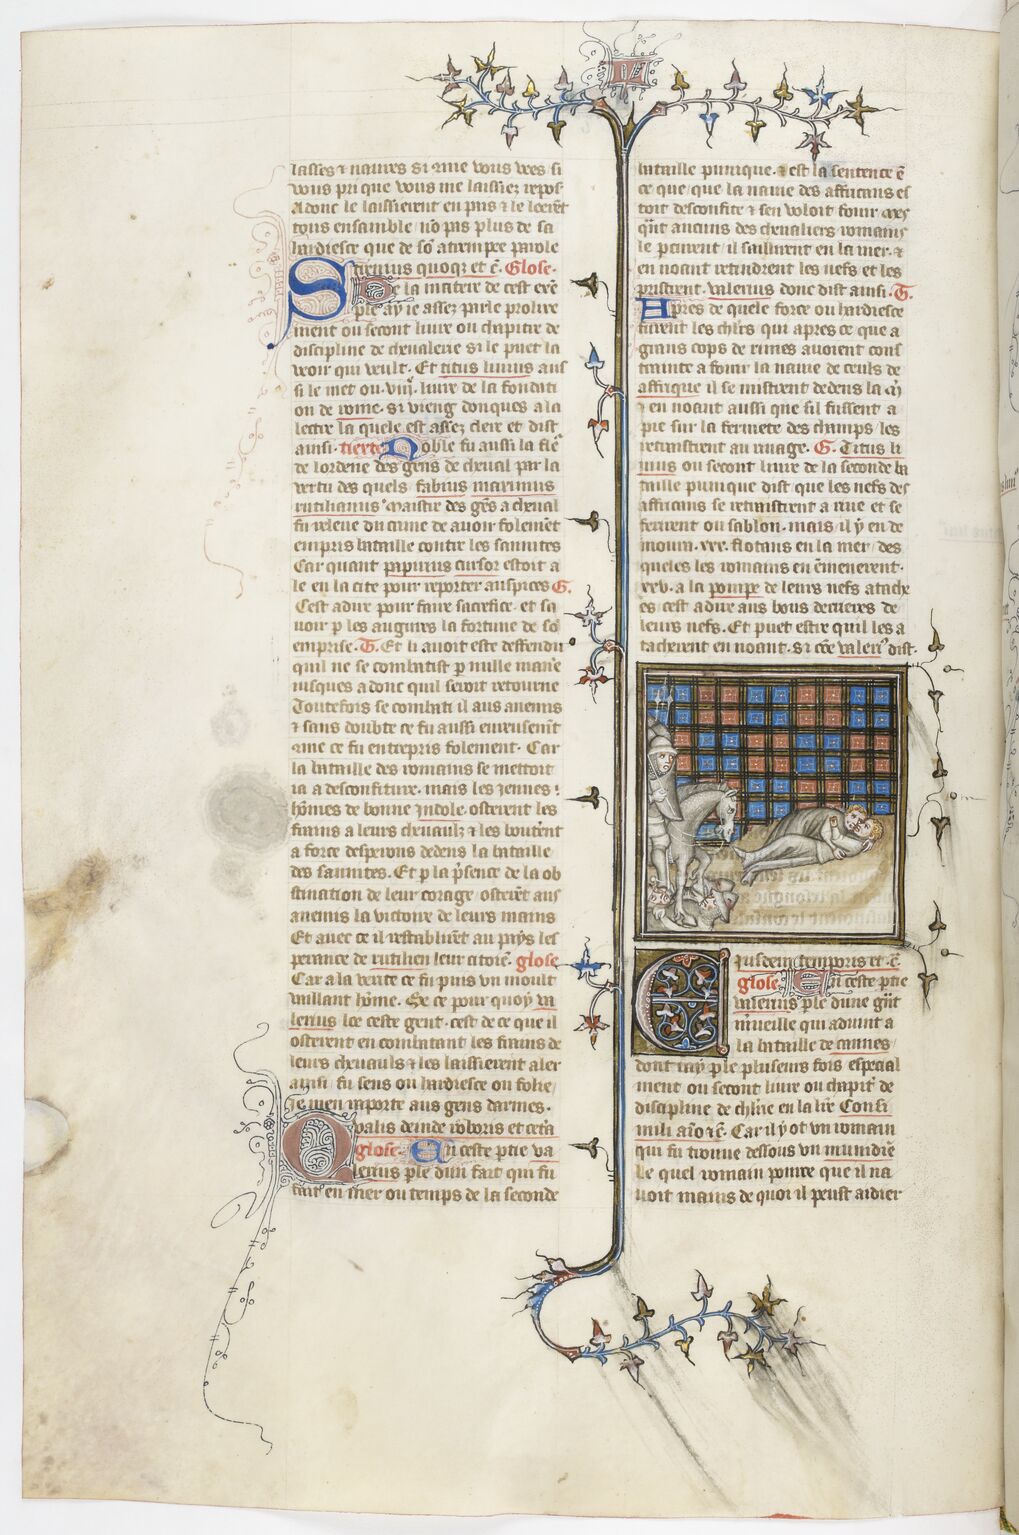 L
lasses & naures Si que vous vees si
vous pri que vous me laissiez repos
Adonc le laissierent en pais & le leeret
tous ensamble / no pas plus de sa
hardiesce que de so atrempee parole
Strenuus quoqz et c. Glose.
De la matere de cest exe
ple ay ie assez parle prolixe
ment ou second liure ou chapitre de
discipline de cheualerie si le puet la
veoir qui veult. Et titus liuius aus
si le met ou .viij. liure de la fondati
on de rome. Si vieng donques a la
lectre la quele est assez clere et dist
ainsi. tiexte Noble fu aussi la fle
de lordene des gens de cheual par la
vertu des quels fabius maximus
rutilianus maistre des gens a cheual
fu releue du crime de auoir folemet
empris bataille contre les sannites
Car quant papirius cursor estoit a
le en la cite pour reporter auspices G.
Cest adire pour faire sacrefice. et sa
uoir p les augures la fortune de so
emprise. T. Et li auoit este deffendu
quil ne se combatist p nulle maniere
iusques adonc quil seroit retourne
Toutefois se combati il aus anemis
& sans doubte ce fu aussi eureusement
que ce fu entrepris folement. Car
la bataille des romains se mettoit
ia a desconfiture. mais les jennes
hommes de bonne jndole. osterent les
frains a leurs cheuaulz & les bouterent
a force desperons dedens la bataille
des sannites. Et p la presence de la ob
stination de leur corage osterent aus
anemis la victoire de leurs mains
Et auec ce il restablirent au pays les
perance de rutilien leur citoien. glose
Car a la verite ce fu puis vn moult
vaillant homme. Et ce pour quoy va
lerius loe ceste gent. cest de ce que il
osterent en combatant les frains de
leurs cheuauls & les laissierent aler
ainsi. fu sens ou hardiesce ou folie /
Je men raporte aus gens darmes.
Qualis deinde roboris et cetera
glose. En ceste ptie va
lerius ple dun fait qui fu
fait en mer ou temps de la seconde
bataille punique. & est la sentence
ce que que la nauie des affricans es
toit desconfite & sen voloit fouir
quant aucuns des cheualiers romains
le perceurent / il saillirent en la mer. &
en noant retindrent les nefs et les
pristrent. Valerius donc dist ainsi. T.
Apres de quele force ou hardiesce
furent les chlrs qui apres ce que a
grans cops de rimes auoient cons
trainte a fouir la nauie de ceuls de
affrique il se mistrent dedens la
& en noant aussi que sil fussent a
pie sur la fermete des champs / les
retraistrent au riuage. G. Titus li
uius ou second liure de la seconde ba
taille punique dist que les nefs des
affricans se retraistrent a riue et se
ferirent ou sablon. mais il y en de
moura .xxx. flotans en la mer / des
queles les romains en emmenerent.
xxv. a la pompe de leurs nefs atachi
es cest adire aus bous derrieres de
leurs nefs. Et puet estre quil les a
tachierent en noant. Si come valerius dist.
Eiusdem temporis et c.
glose. En ceste ptie
valerius ple dune grant
merueille qui aduint a
la bataille de cannes /
dont iay ple pluseurs fois especial
ment ou second liure ou chapitre de
discipline de chlrie en la lre Consi
mili animo &c. Car il y ot vn romain
qui fu trouue dessous vn numidien
Le quel romain pource que il na
uoit mains de quoi il peust aidier